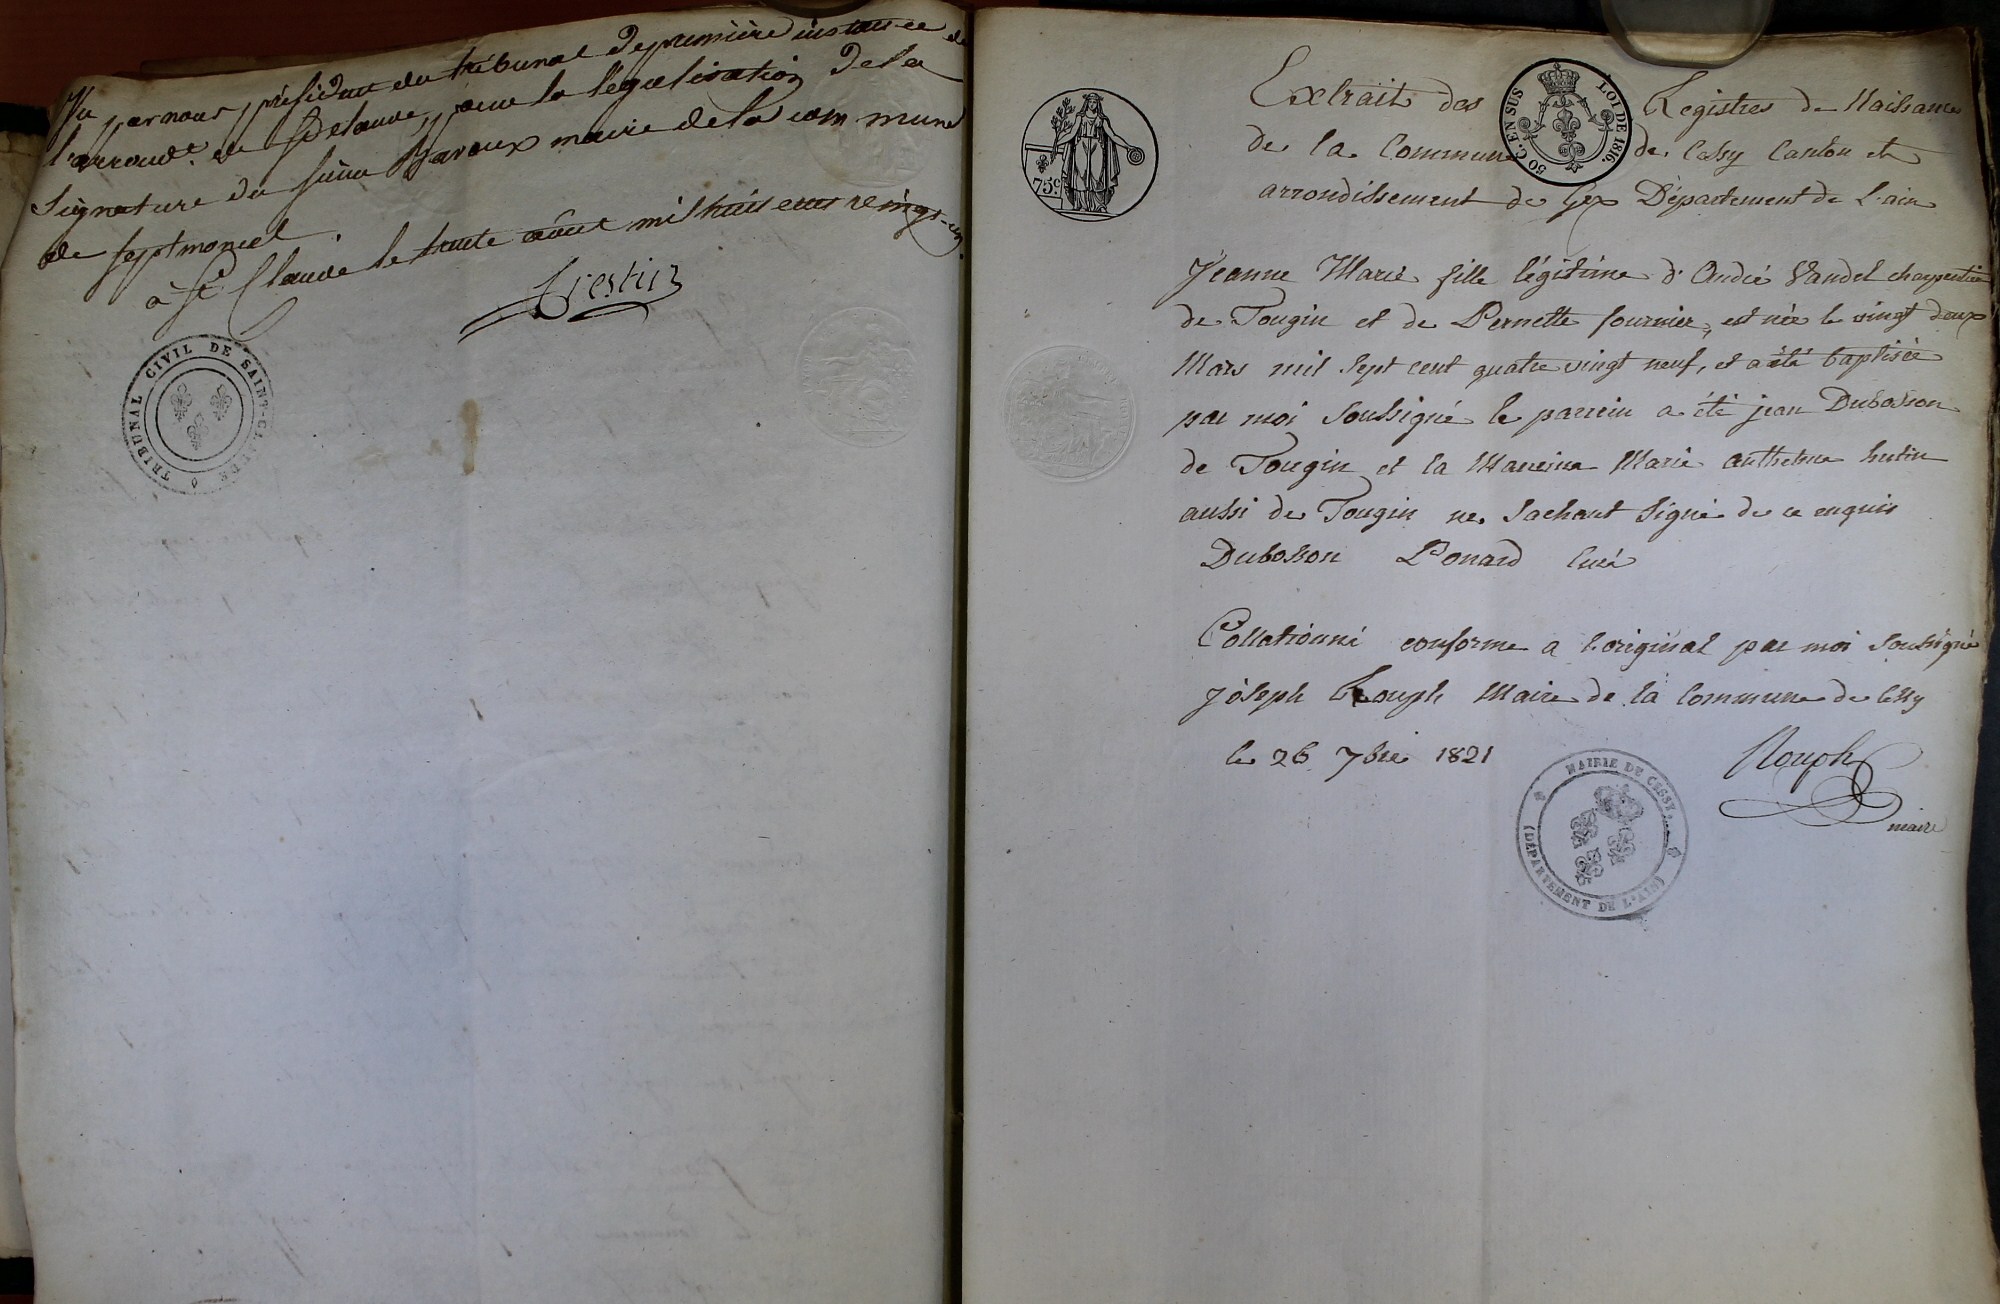 Vu par nous, président du tribunal de première instance de
l'arrondt. de St Claude, pour la légalisation de la
signature du sieur Baroux maire de la commune
de septmoncel.
à St Claude le trente août mil huit cent vingt-un.
TRIBUNAL CIVIL DE SAINT-CLAUDE
75 c.
50 C. EN SUS
LOI DE 1816.
Extrait des Registres de Naissance
de la Commune de Cessy Canton et
arrondissement de Gex Département de L'ain
Jeanne Marie fille légitime d'André Vandel charpentier
de Tougin et de Pernette fournier, est née le vingt deux
Mars mil sept cent quatre vingt neuf, et a été baptisée
par moi Soussigné le parrein a été jean Dubosson
de Tougin et la Mareine Marie anthelme hutin
aussi de Tougin ne sachant signé de ce enquis
Dubosson Ponard Curé
Collationné conforme a l'original par moi Soussigné
joseph Rouph Maire de la Commune de Cessy
le 26 7bre 1821
Rouph
maire
MAIRIE DE CESSY
(DÉPARTEMENT DE L'AIN)